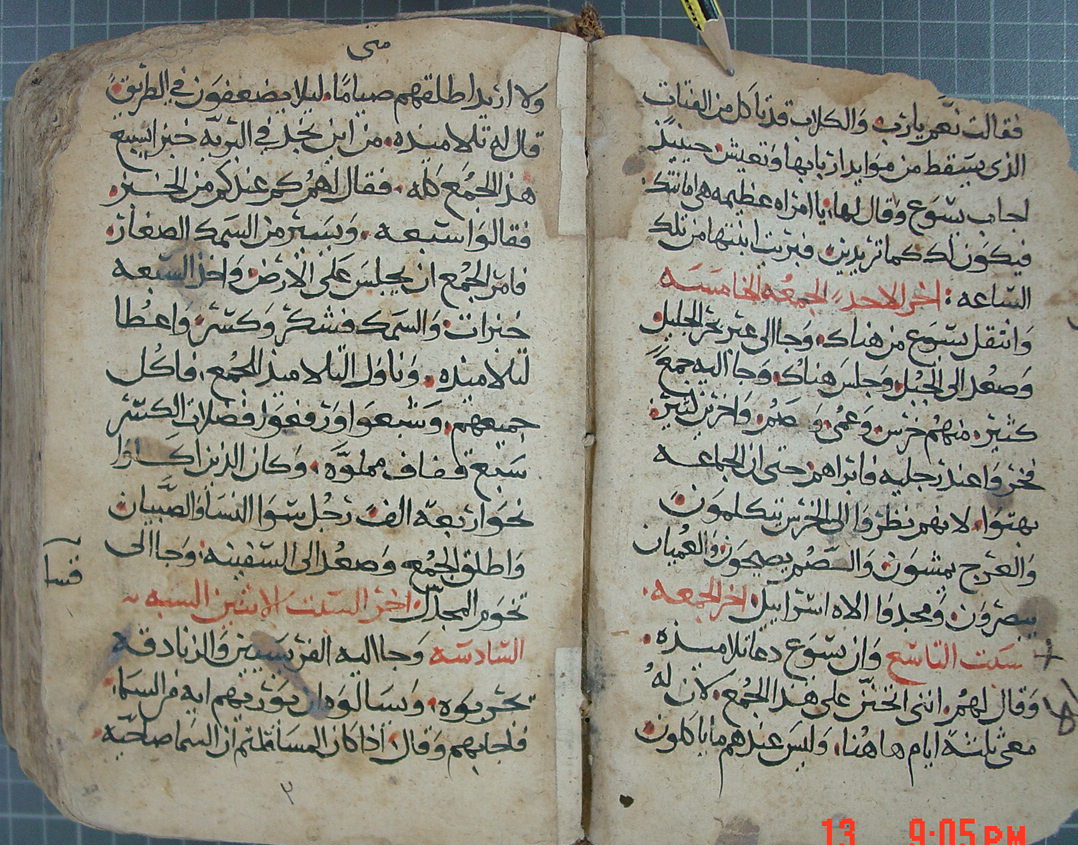 فقالت نعم يا رب والكلاب قد تاكل من الفتات
الذى يسقط من موايد اربابها وتعيش حينيذ
اجاب يسوع وقال لها يا امراه عظيمه هى امانتك
فيكون لك كما تريدين فبريت ابنتها من تلك
الساعه : اخر الاحد الجمعه الخامسه
وانتقل يسوع من هناك وجا الى عبر بحر الجليل
وصعد الى الجبل وجلس هناك وجا اليه جمع
كثير منهم خرس وعمى وصم واخرين كثير
فخروا عند رجليه فابراهم حتى ان الجماعه
بهتوا لانهم نظروا الى الخرس يتكلمون
والعرج يمشون والصم يسمعون والعميان
يبصرون ومجدوا الاه اسراييل اخر الجمعه
سبت التاسع وان يسوع دعا تلاميذه
وقال لهم اننى اتحنن على هذا الجمع لان له
معى ثلثة ايام هاهنا وليس عندهم ما ياكلون
متى
ولا اريد اطلقهم صياما ليلا يضعفون في الطريق
قال له تلاميذه من اين نجد في البريه خبز يشبع
هذا الجمع كله فقال لهم كم عندكم من الخبز
فقالوا سبعه ويسير من السمك الصغار
فامر الجمع ان يجلس على الارض واخذ السبعه
خبزات والسمك فشكر وكسر واعطا
لتلاميذه وناول التلاميذ الجمع فاكل
جميعهم وشبعوا ورفعوا فضلات الكسر
سبع قفاف مملوه وكان الذين اكلوا
نحو اربعة الف رجل سوا النسا والصبيان
واطلق الجمع وصعد الى السفينه وجا الى
تخوم المجدل اخر السبت الاثنين السبه
السادسه وجا اليه الفريسيين والزنادقه
يجربوه وسالوه ان يوريهم ايه من السما
فاجابهم وقال اذا كان المسا قلتم ان السما صاحيه